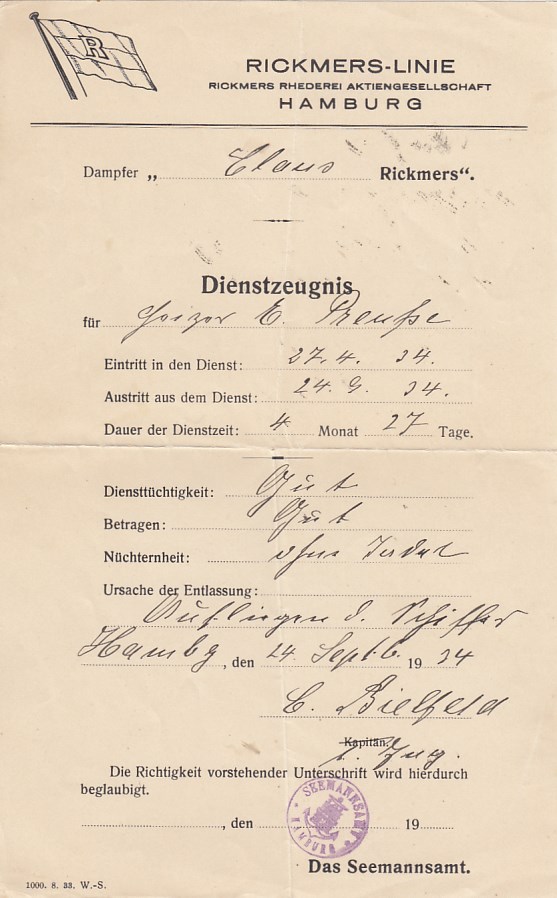 R
RICKMERS-LINIE
RICKMERS RHEDEREI AKTIENGESELLSCHAFT
HAMBURG
Dampfer „ Claus Rickmers“.
Dienstzeugnis
für Heizer E. Preuße
Eintritt in den Dienst: 27. 4. 34.
Austritt aus dem Dienst: 24. 9. 34.
Dauer der Dienstzeit: 4 Monat 27 Tage.
Diensttüchtigkeit: Gut
Betragen: Gut
Nüchternheit: ohne Tadel
Ursache der Entlassung:
Aufliegen d. Schiffes
Hambg, den 24. Septb. 19 34
C. Bielfeld
Kapitän.
I. Ing.
Die Richtigkeit vorstehender Unterschrift wird hierdurch
beglaubigt.
, den 19
SEEMANNSAMT
HAMBURG
Das Seemannsamt.
1000. 8. 33. W.-S.